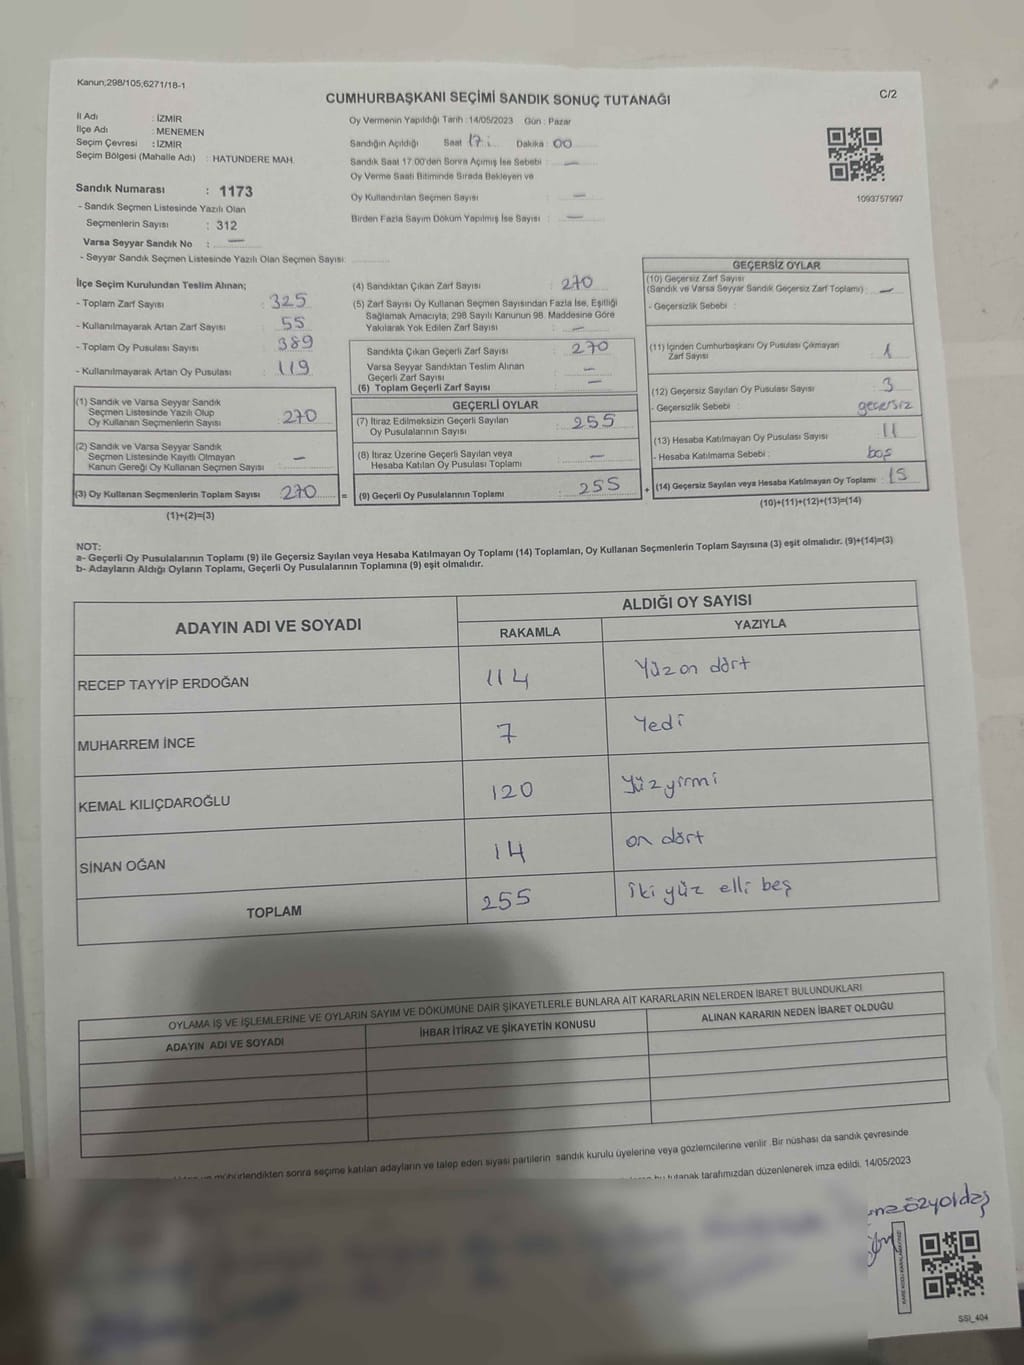 Kanun;298/105,6271/18-1
C/2
CUMHURBAŞKANI SEÇİMİ SANDIK SONUÇ TUTANAĞI
İl Adı : İZMİR
İlçe Adı : MENEMEN
Seçim Çevresi : İZMİR
Seçim Bölgesi (Mahalle Adı) : HATUNDERE MAH.
Sandık Numarası : 1173
- Sandık Seçmen Listesinde Yazılı Olan
Seçmenlerin Sayısı : 312
Varsa Seyyar Sandık No : —
- Seyyar Sandık Seçmen Listesinde Yazılı Olan Seçmen Sayısı:
Oy Vermenin Yapıldığı Tarih : 14/05/2023 Gün : Pazar
Sandığın Açıldığı Saat 17 : Dakika : 00
Sandık Saat 17:00'den Sonra Açımış İse Sebebi : —
Oy Verme Saati Bitiminde Sırada Bekleyen ve
Oy Kullandırılan Seçmen Sayısı : —
Birden Fazla Sayım Döküm Yapılmış İse Sayısı : —
1093757997
İlçe Seçim Kurulundan Teslim Alınan;
- Toplam Zarf Sayısı : 325
- Kullanılmayarak Artan Zarf Sayısı : 55
- Toplam Oy Pusulası Sayısı : 389
- Kullanılmayarak Artan Oy Pusulası : 119
(1) Sandık ve Varsa Seyyar Sandık
Seçmen Listesinde Yazılı Olup
Oy Kullanan Seçmenlerin Sayısı : 270
(2) Sandık ve Varsa Seyyar Sandık
Seçmen Listesinde Kayıtlı Olmayan
Kanun Gereği Oy Kullanan Seçmen Sayısı : —
(3) Oy Kullanan Seçmenlerin Toplam Sayısı : 270 =
(1)+(2)=(3)
(4) Sandıktan Çıkan Zarf Sayısı : 270
(5) Zarf Sayısı Oy Kullanan Seçmen Sayısından Fazla İse, Eşitliği
Sağlamak Amacıyla, 298 Sayılı Kanunun 98. Maddesine Göre
Yakılarak Yok Edilen Zarf Sayısı : —
Sandıkta Çıkan Geçerli Zarf Sayısı : 270
Varsa Seyyar Sandıktan Teslim Alınan
Geçerli Zarf Sayısı : —
(6) Toplam Geçerli Zarf Sayısı : —
GEÇERLİ OYLAR
(7) İtiraz Edilmeksizin Geçerli Sayılan
Oy Pusulalarının Sayısı : 255
(8) İtiraz Üzerine Geçerli Sayılan veya
Hesaba Katılan Oy Pusulası Toplamı : —
(9) Geçerli Oy Pusulalarının Toplamı : 255 +
GEÇERSİZ OYLAR
(10) Geçersiz Zarf Sayısı
(Sandık ve Varsa Seyyar Sandık Geçersiz Zarf Toplamı) : —
- Geçersizlik Sebebi :
(11) İçinden Cumhurbaşkanı Oy Pusulası Çıkmayan
Zarf Sayısı : 1
(12) Geçersiz Sayılan Oy Pusulası Sayısı : 3
- Geçersizlik Sebebi : geçersiz
(13) Hesaba Katılmayan Oy Pusulası Sayısı : 11
- Hesaba Katılmama Sebebi : boş
(14) Geçersiz Sayılan veya Hesaba Katılmayan Oy Toplamı : 15
(10)+(11)+(12)+(13)=(14)
NOT:
a- Geçerli Oy Pusulalarının Toplamı (9) ile Geçersiz Sayılan veya Hesaba Katılmayan Oy Toplamı (14) Toplamları, Oy Kullanan Seçmenlerin Toplam Sayısına (3) eşit olmalıdır. (9)+(14)=(3)
b- Adayların Aldığı Oyların Toplamı, Geçerli Oy Pusulalarının Toplamına (9) eşit olmalıdır.
ADAYIN ADI VE SOYADI
ALDIĞI OY SAYISI
RAKAMLA YAZIYLA
RECEP TAYYİP ERDOĞAN 114 Yüz on dört
MUHARREM İNCE 7 Yedi
KEMAL KILIÇDAROĞLU 120 Yüz yirmi
SİNAN OĞAN 14 on dört
TOPLAM 255 iki yüz elli beş
OYLAMA İŞ VE İŞLEMLERİNE VE OYLARIN SAYIM VE DÖKÜMÜNE DAİR ŞİKAYETLERLE BUNLARA AİT KARARLARIN NELERDEN İBARET BULUNDUKLARI
ADAYIN ADI VE SOYADI İHBAR İTİRAZ VE ŞİKAYETİN KONUSU ALINAN KARARIN NEDEN İBARET OLDUĞU
mühürlendikten sonra seçime katılan adayların ve talep eden siyasi partilerin sandık kurulu üyelerine veya gözlemcilerine verilir .Bir nüshası da sandık çevresinde
bu tutanak tarafımızdan düzenlenerek imza edildi. 14/05/2023
özyoldaş
SSI_404